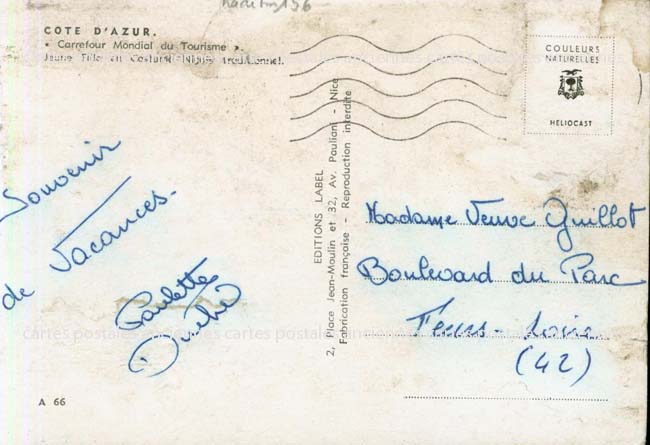 COTE D'AZUR.
« Carrefour Mondial du Tourisme ».
Jeune Fille en Costume Niçois traditionnel.
COULEURS
NATURELLES
HELIOCAST
Souvenir
de Vacances.
Paulette
EDITIONS LABEL
2, Place Jean-Moulin et 32, Av. Pauliani - Nice
Fabrication française - Reproduction interdite
Madame Veuve Guillot
Boulevard du Parc
Feurs - Loire
(42)
A 66
cartes postales anciennes cartes postales anciennes cartes postales anciennes